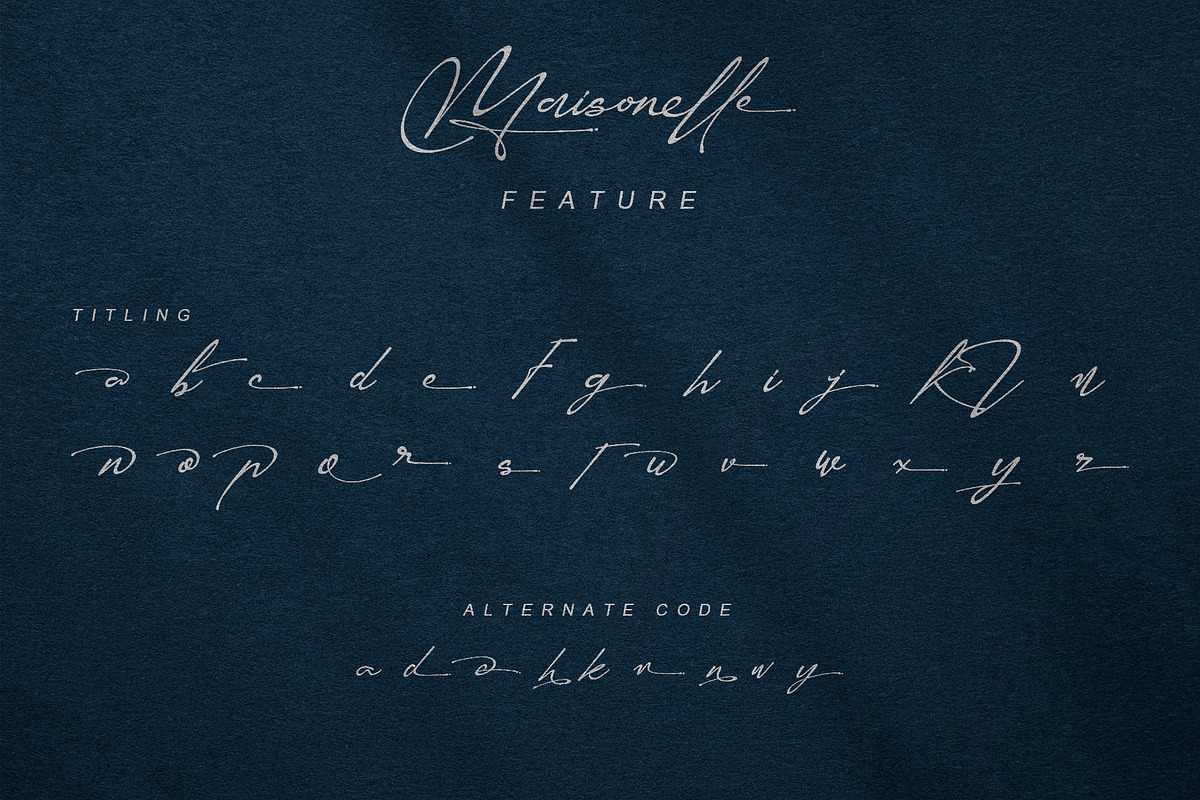 Maisonelle
FEATURE
TITLING
a b c d e F g h i j k l m
n o p Q r s T u v w x y z
ALTERNATE CODE
a d h k n w y